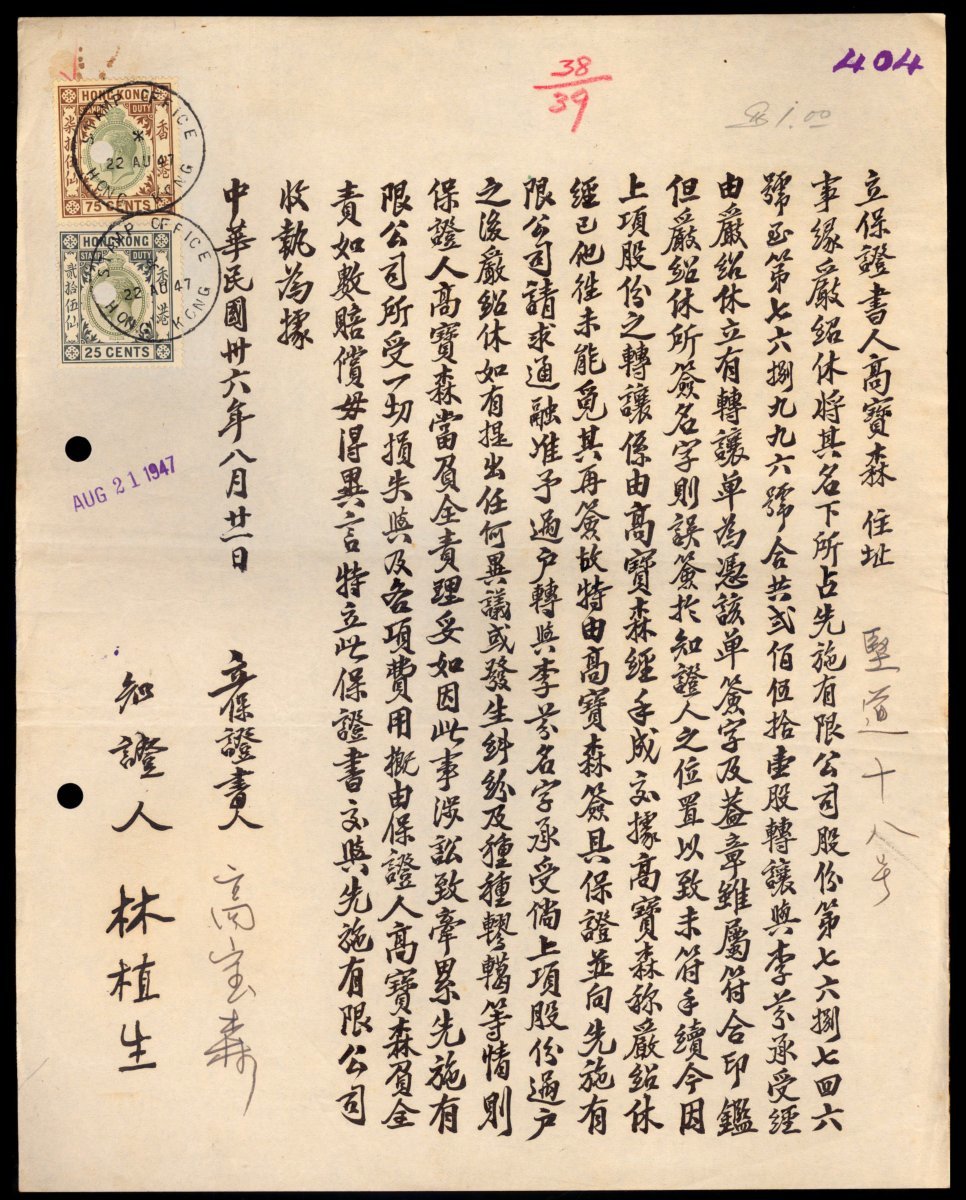 404
38
39
$1.00
HONG KONG
STAMP DUTY
香港
柒拾伍仙
75 CENTS
STAMP OFFICE
22 AU 47
HONG KONG
HONG KONG
STAMP DUTY
香港
貳拾伍仙
25 CENTS
STAMP OFFICE
22 AU 47
HONG KONG
立保證書人高寶森 住址 堅道十八号
事緣嚴紹休將其名下所占先施有限公司股份第七六捌七四六
號至第七六捌九九六號合共弍佰伍拾壹股轉讓與李芬承受經
由嚴紹休立有轉讓单為憑該单簽字及蓋章雖屬符合印鑑
但嚴紹休所簽名字則誤簽於知證人之位置以致未符手續今因
上項股份之轉讓係由高寶森經手成交據高寶森称嚴紹休
經已他徃未能覓其再簽故特由高寶森簽具保證並向先施有
限公司請求通融准予過户轉與李芬名字承受倘上項股份過户
之後嚴紹休如有提出任何異議或發生糾紛及種種轇轕等情則
保證人高寶森當負全責理妥如因此事涉訟致牽累先施有
限公司所受一切損失與及各項費用概由保證人高寶森負全
責如數賠償毋得異言特立此保證書交與先施有限公司
收執為據
中華民國卅六年八月廿一日
立保證書人 高宝森
知證人 林植生
AUG 21 1947